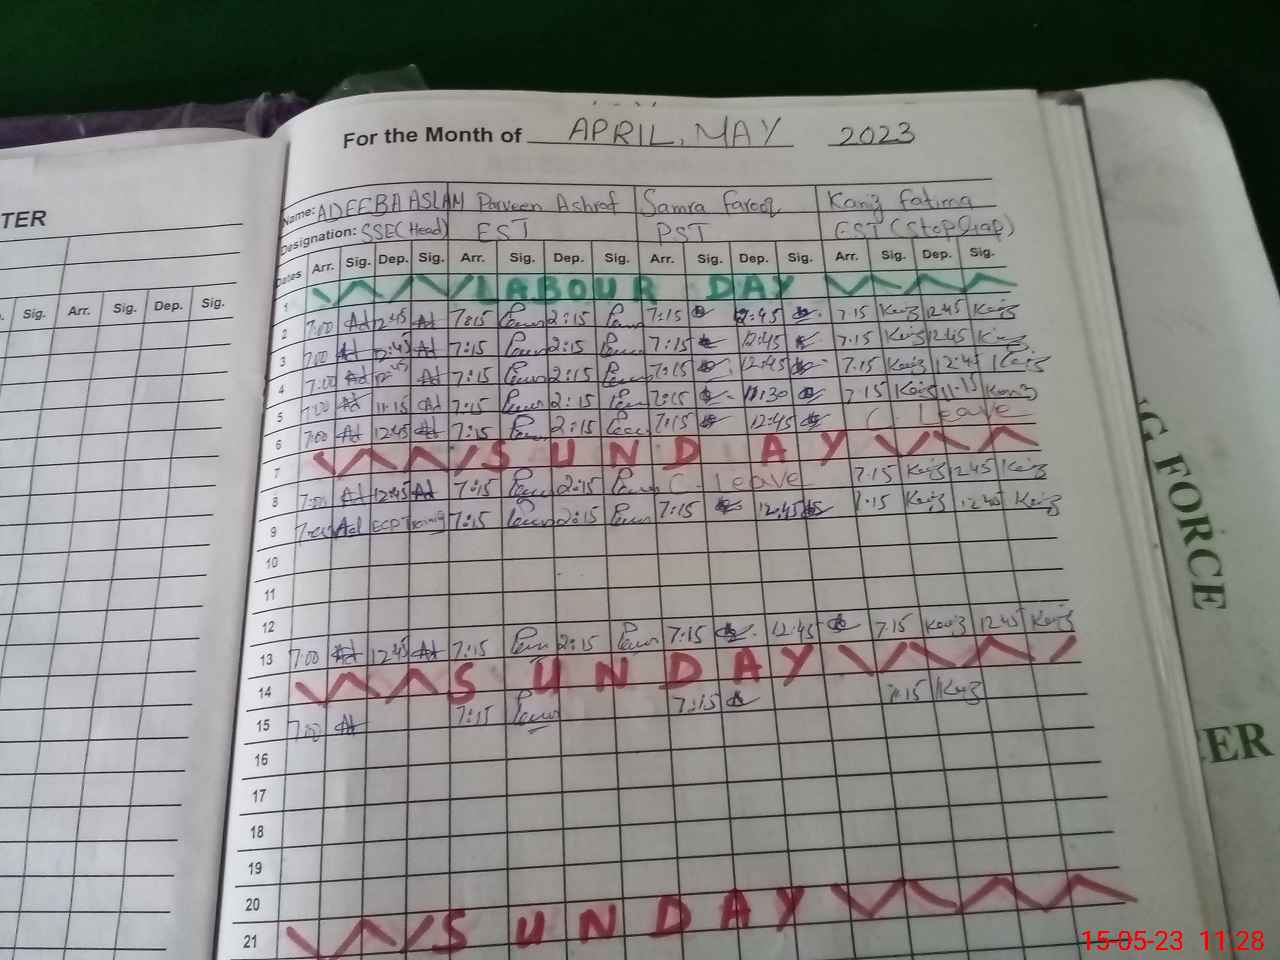 For the Month of APRIL, MAY 2023
TER
Name: ADEEBA ASLAM Parveen Ashraf Samra Farooq Kaniz Fatima
Designation: SSE(Head) EST PST EST (Stop Gap)
Dates Arr. Sig. Dep. Sig. Arr. Sig. Dep. Sig. Arr. Sig. Dep. Sig. Arr. Sig. Dep. Sig.
Sig. Arr. Sig. Dep. Sig.
1 LABOUR DAY
2 7:00 Ad 12:45 Ad 7:15 2:15 7:15 12:45 7:15 Kaniz 12:45 Kaniz
3 7:00 Ad 12:45 Ad 7:15 2:15 7:15 12:45 7:15 Kaniz 12:45 Kaniz
4 7:00 Ad 12:45 Ad 7:15 2:15 7:15 12:45 7:15 Kaniz 12:45 Kaniz
5 7:00 Ad 11:15 Ad 7:15 2:15 7:15 11:30 7:15 Kaniz 11:15 Kaniz
6 7:00 Ad 12:45 Ad 7:15 2:15 7:15 12:45 C. Leave
7 SUNDAY
8 7:00 Ad 12:45 Ad 7:15 2:15 C. Leave 7:15 Kaniz 12:45 Kaniz
9 7:00 Ad ECP Training 7:15 2:15 7:15 12:45 7:15 Kaniz 12:45 Kaniz
10
11
12
13 7:00 Ad 12:45 Ad 7:15 2:15 7:15 12:45 7:15 Kaniz 12:45 Kaniz
14 SUNDAY
15 7:00 Ad 7:15 7:15 7:15 Kaniz
16
17
18
19
20
21 SUNDAY
G FORCE
ER
15-05-23 11:28